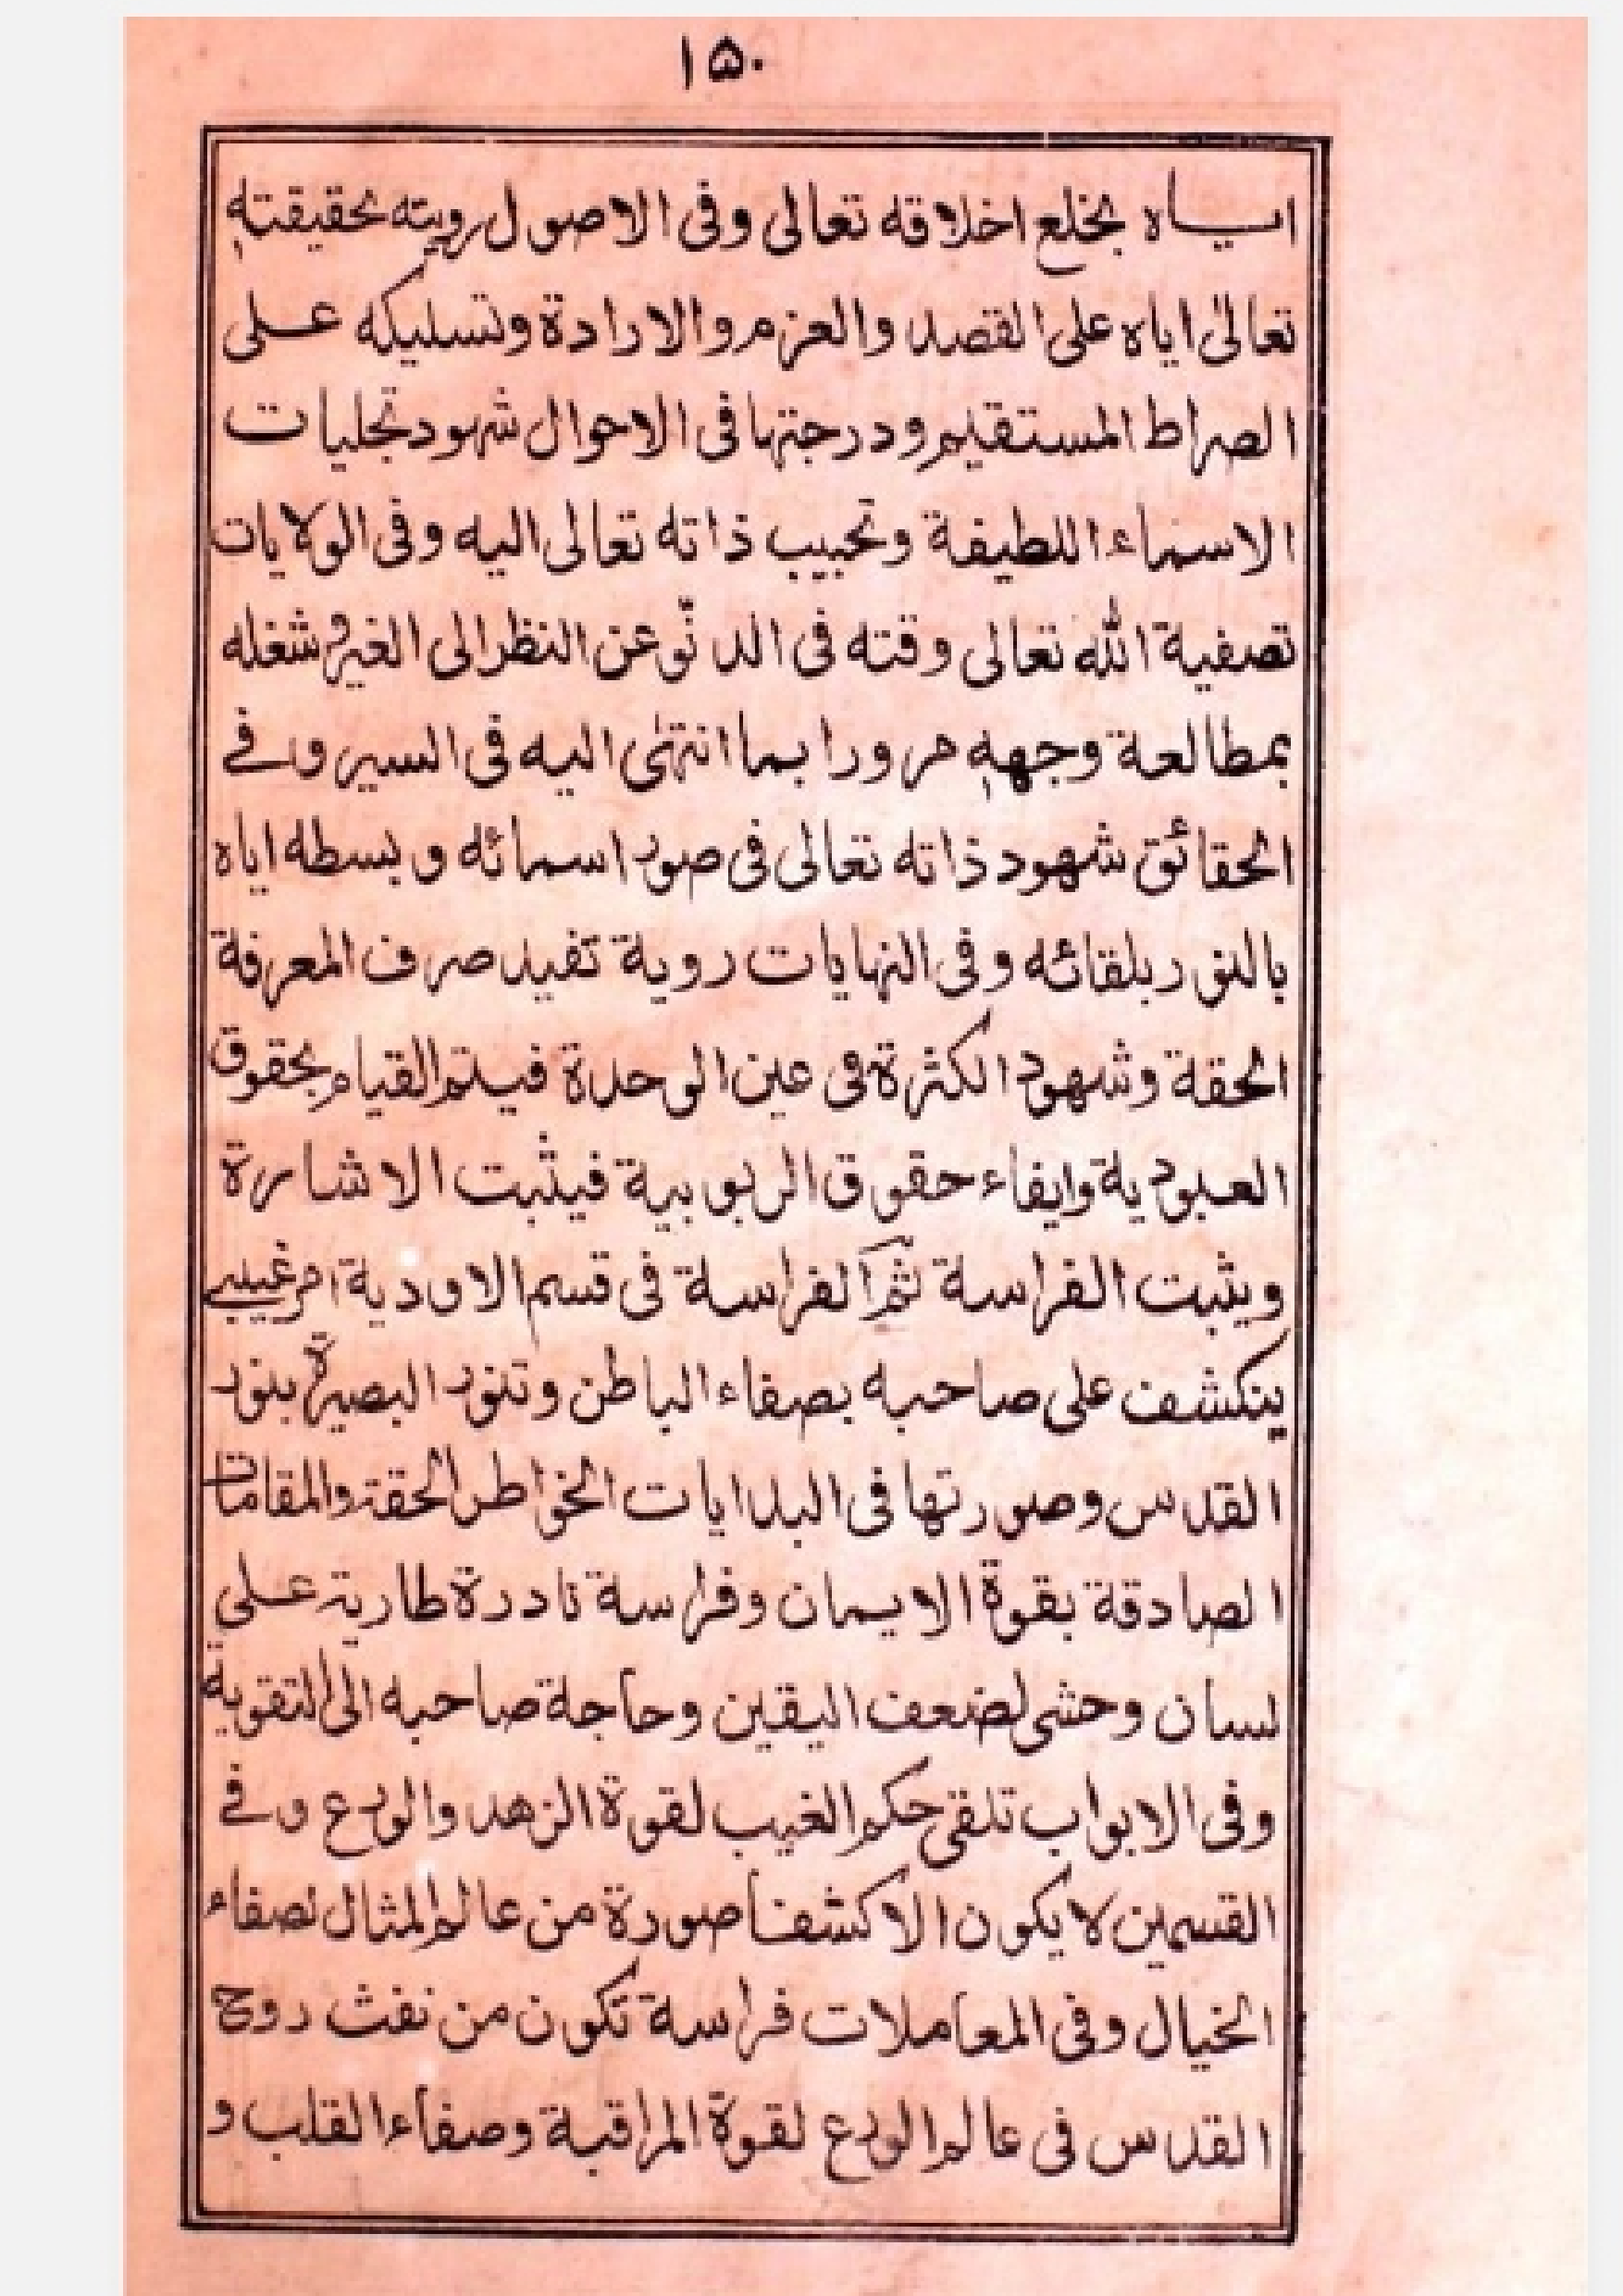 ١۵٠
ايـــاه بخلع اخلاقه تعالى وفى الاصول رويته بحقيقته
تعالىٰ اياه على القصد والعزم والارادة وتسليكه على
الصراط المستقيم ودرجتها فى الاحوال شهود تجليات
الاسماء اللطيفة وتحبيب ذاته تعالى اليه وفى الولايات
تصفية الله تعالى وقته فى الدنّو عن النظر الى الغير وشغله
بمطالعة وجهه مرورا بما انتهٰى اليه فى السير وفے
الحقائق شهود ذاته تعالى فى صور اسمائه وبسطه اياه
بالنور بلقائه وفى النهايات روية تفيد صرف المعرفة
الحقة وشهود الكثرة فى عين الوحدة فيتم القيام بحقوق
العبودية وايفاء حقوق الربوبية فيثبت الاشارة
ويثبت الفراسة ثم الفراسة فى قسم الاودية امر غيبے
ينكشف على صاحبه بصفاء الباطن وتنور البصيرة بنور
القدس وصورتها فى البدايات الخواطر الحقة والمقامات
الصادقة بقوة الايمان وفراسة نادرة طارية على
لسان وحشى لضعف اليقين وحاجة صاحبه الى التقوية
وفى الابواب تلقى حكم الغيب لقوة الزهد والورع وفے
القسمين لا يكون الا كشفا صورة من عالم المثال لصفاء
الخيال وفى المعاملات فراسة تكون من نفث روح
القدس فى عالم الورع لقوة المراقبة وصفاء القلب و